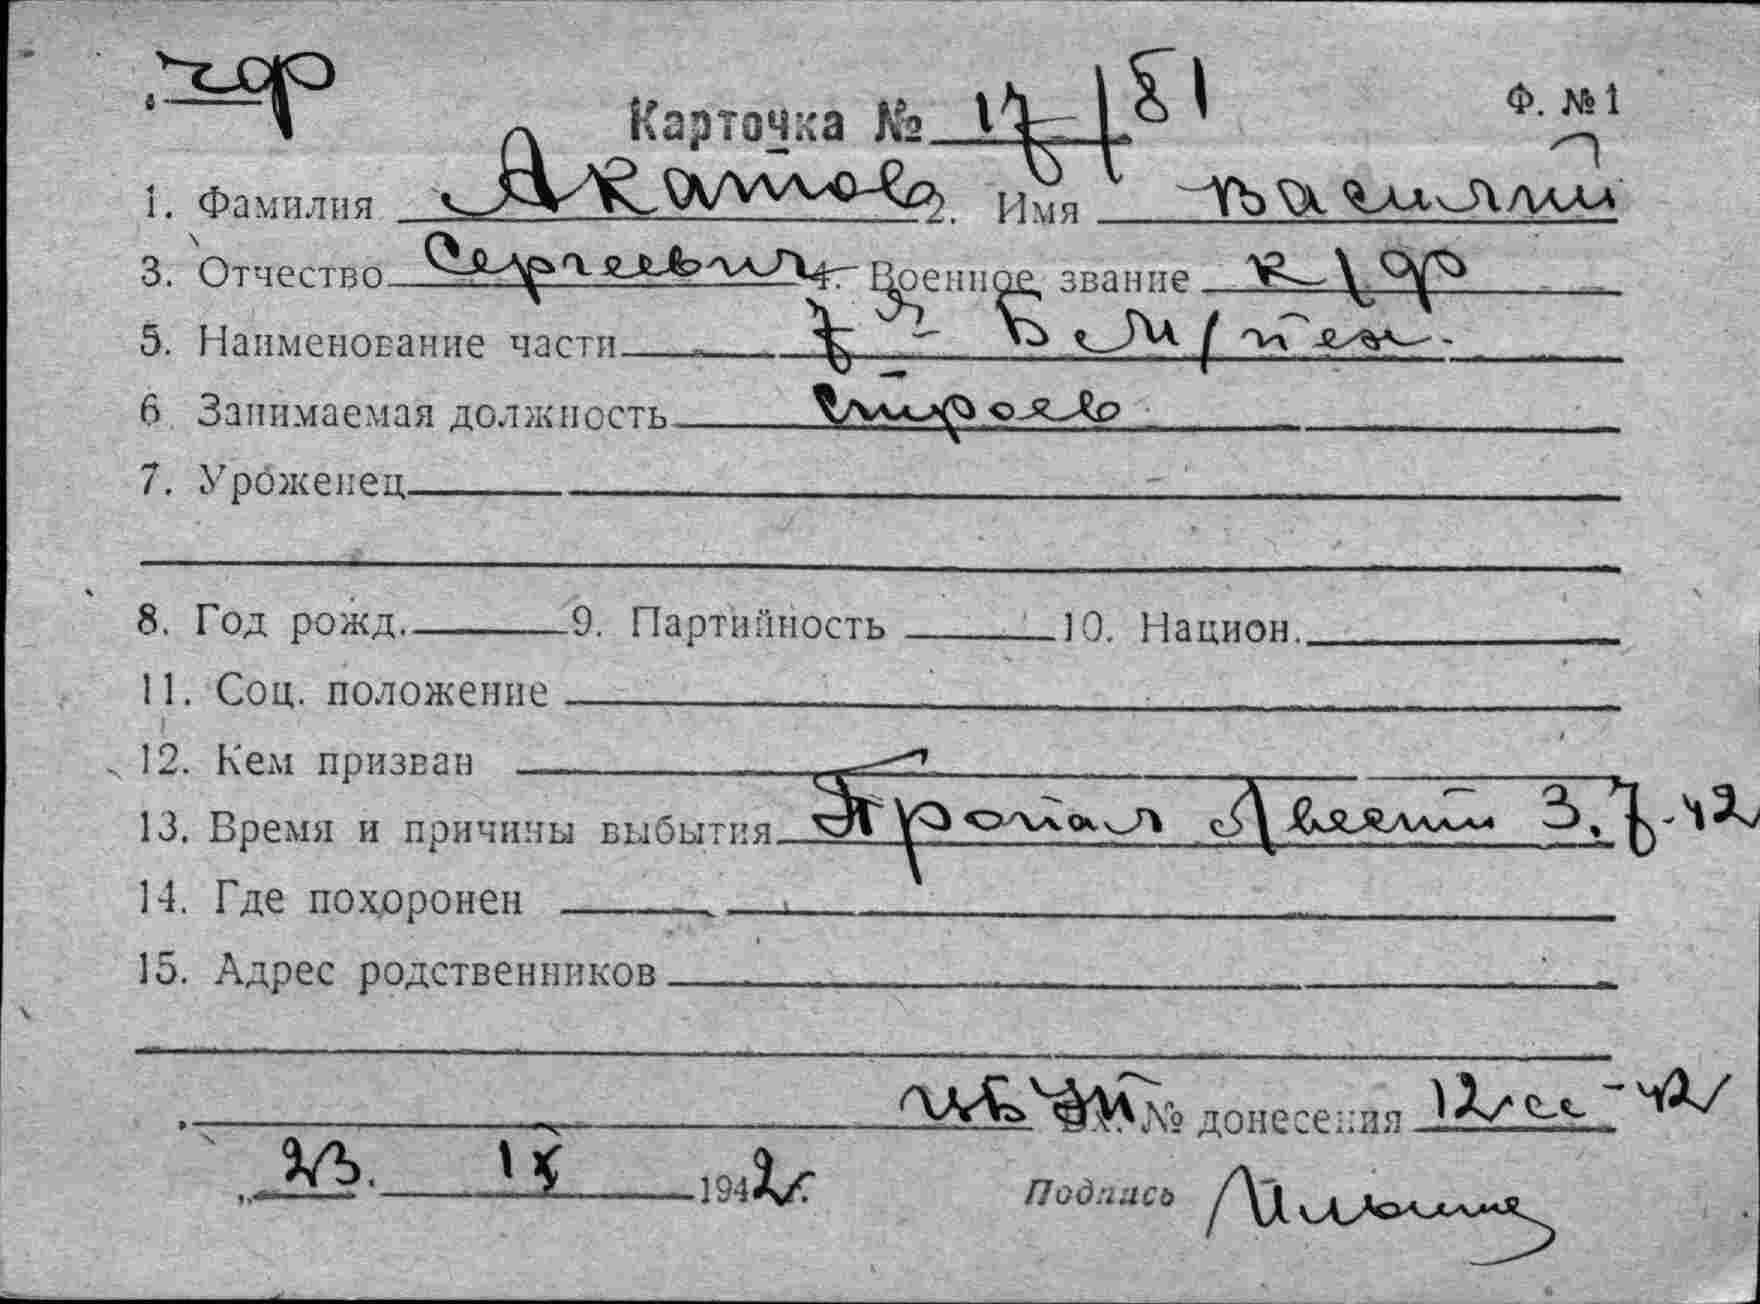 Карточка № 17/81 Ф. № 1
1. Фамилия Акатов 2. Имя Василий
3. Отчество Сергеевич 4. Военное звание к/ф
5. Наименование части 7 Б М/пех.
6 Занимаемая должность Строев
7. Уроженец
8. Год рожд. 9. Партийность 10. Национ.
11. Соц. положение
12. Кем призван
13. Время и причины выбытия Пропал Без вести 3.7-42
14. Где похоронен
15. Адрес родственников
Вх. № донесения 12/сс-42
„ 23. IX 1942 г.
Подпись